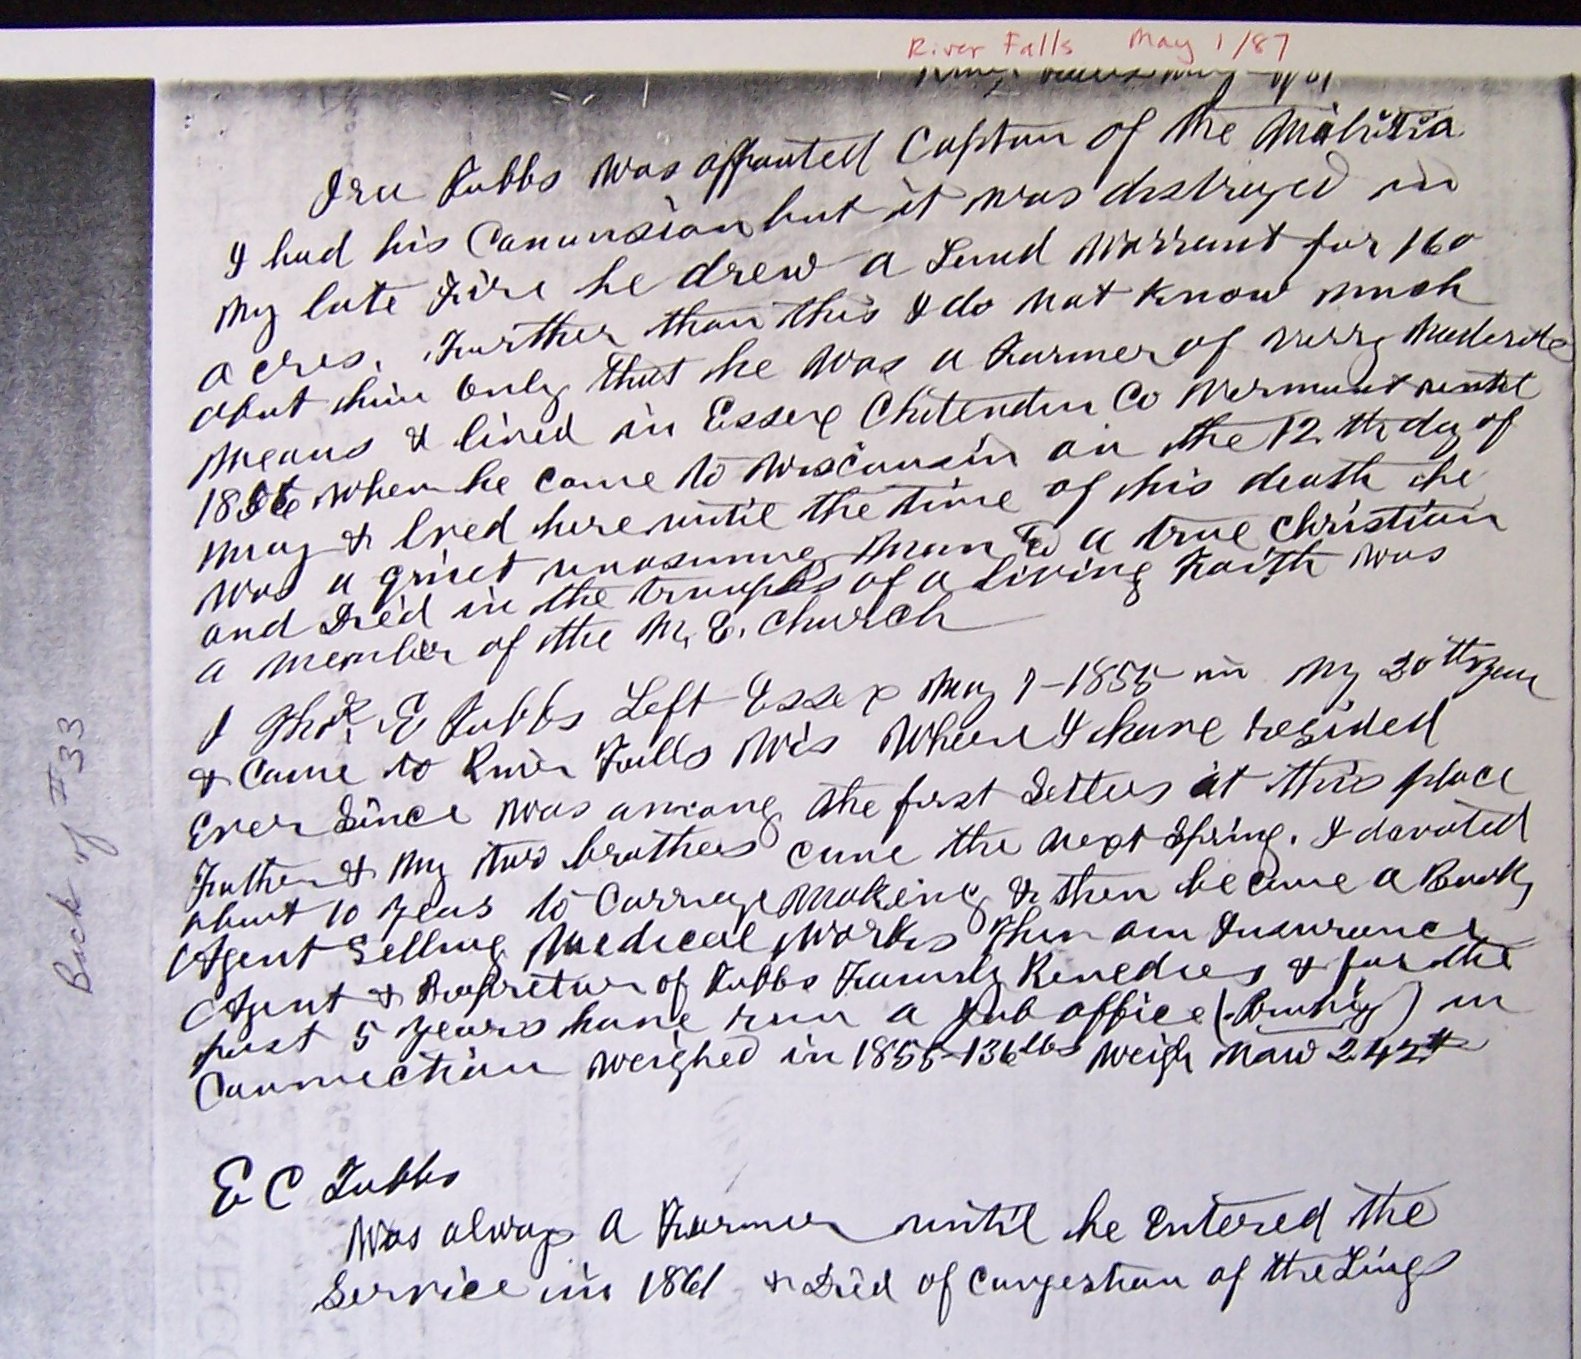 River Falls May 1/87
Ira Tubbs was appointed Captian of the Malitia
I had his Commission but it was distroyed in
my late Fire he drew a Land Warrant for 160
acres. Further than this I do not know much
about him only that he was a Farmer of verry Maderate
Means & lived in Essex Chitenden Co Vermont until
1856 when he came to Wisconsin on the 12th day of
May & lived here until the time of his death he
was a qriet unasuming Man & a true Christian
and Died in the triumphs of a living Faith was
a member of the M. E. church
I Thos E Tubbs Left Essex May 1-1855 in my 20th year
& came to River Falls Wis Where I have resided
Ever Since was among the first Setters at this place
Father & my two brothers came the next Spring. I devoted
about 10 years to Carriage Making & then became a Book
Agent Selling Medical Works Then am Insurance
Agent & Propretor of Tubbs Family Remedies & for the
past 5 years have run a Job office (Printing) in
Connection weighed in 1855-136 lbs weigh Now 242#
E C Tubbs
Was always a Farmer until he Entered the
Service in 1861 & Died of Congestion of the Lungs
Back of #33